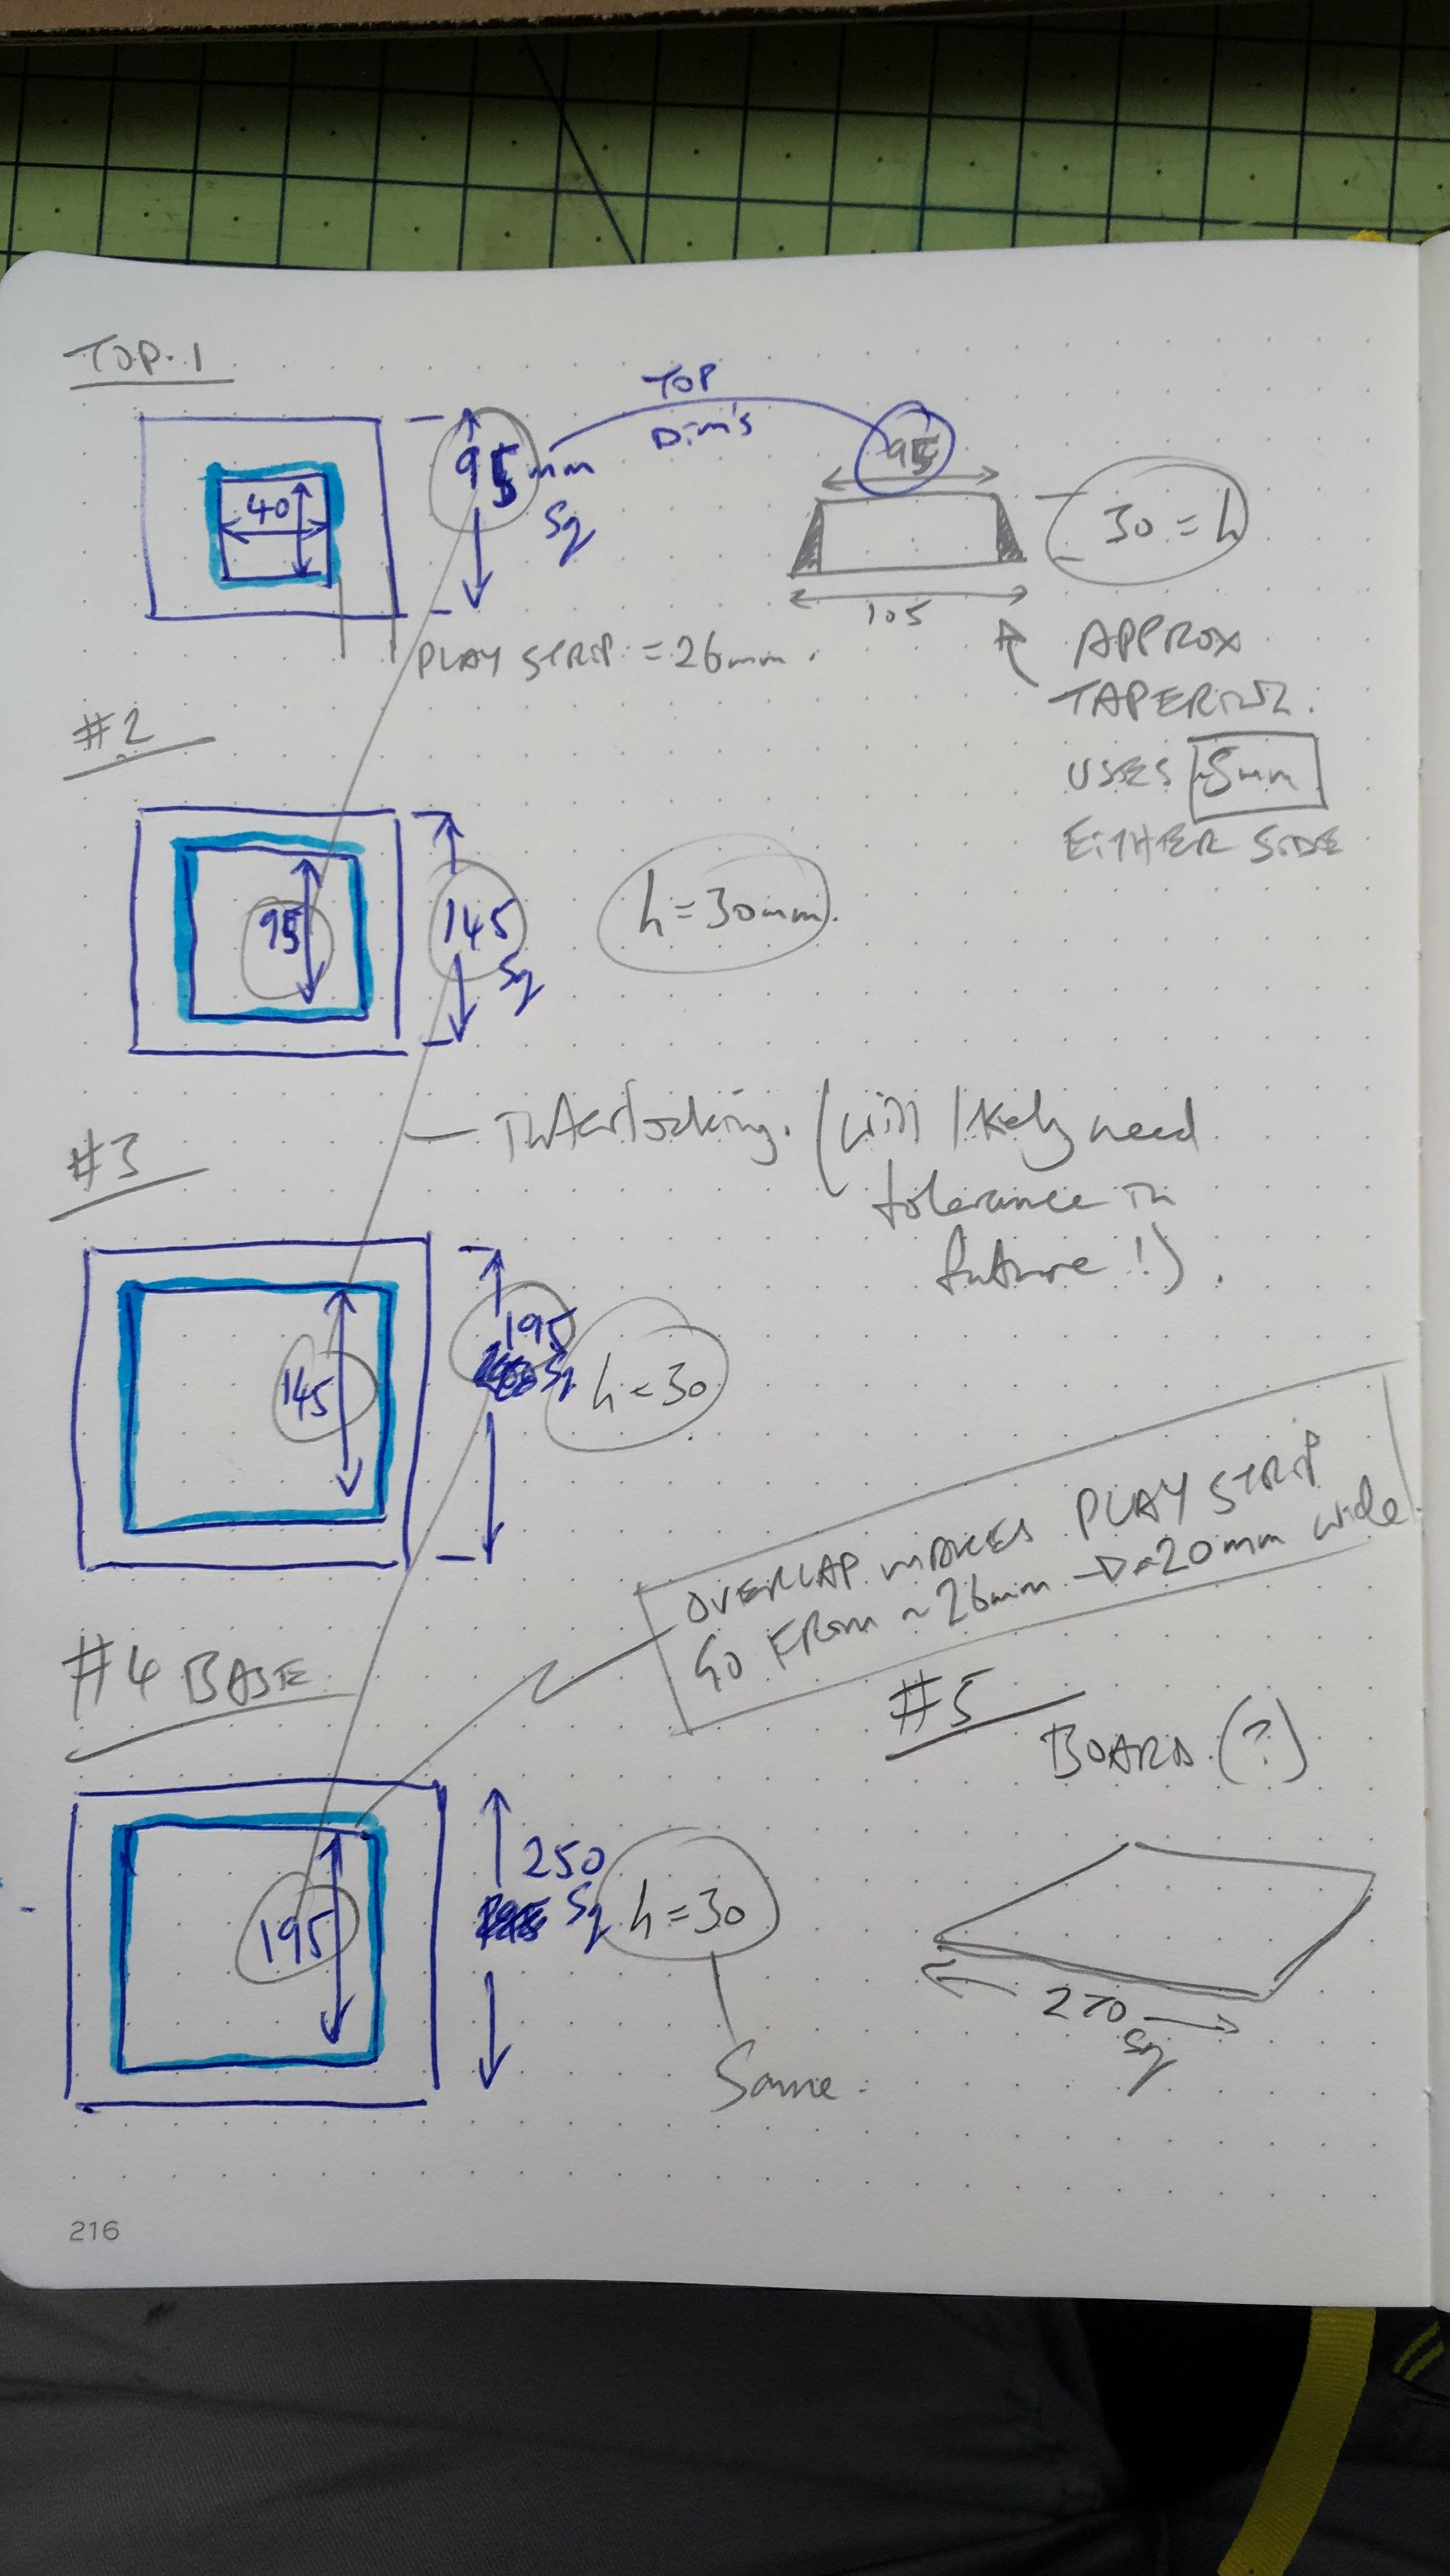 TOP. 1
40
95mm
Sq
TOP
Dim's
95
30 = h
105
PLAY STRIP = 26mm.
APPROX
TAPERING.
USES 5mm
EITHER SIDE
#2
95
145
Sq
h = 30mm.
INterlocking. (will likely need
tolerance in
future!).
#3
145
195
Sq
h = 30
OVERLAP MAKES PLAY STRIP
GO FROM ~26mm → ~20mm wide
#4 BASE
195
250
Sq
h = 30
Same.
#5
BOARD (?)
270
Sq
216